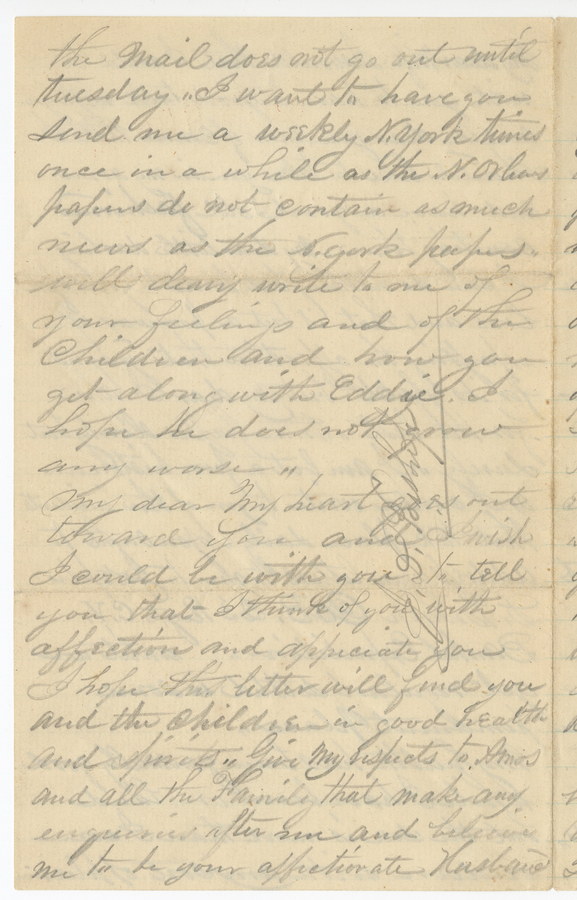 the mail does not go out until
tuesday „ I want to have you
send me a weekly N. York times
once in a while as the N. Orleans
papers do not contain as much
news as the N. york papers „
well deary write to me of
your feelings and of the
Children and how you
get along with Eddie. I
hope he does not grow
any worse „
My dear My heart goes out
toward you and I wish
I could be with you to tell
you that I think of you with
affection and appiciate you
I hope this letter will find you
and the children in good health
and spirits „ Give My respects to Amos
and all the Family that make any
enquiries after me and believe
me to be your affectionate Husband